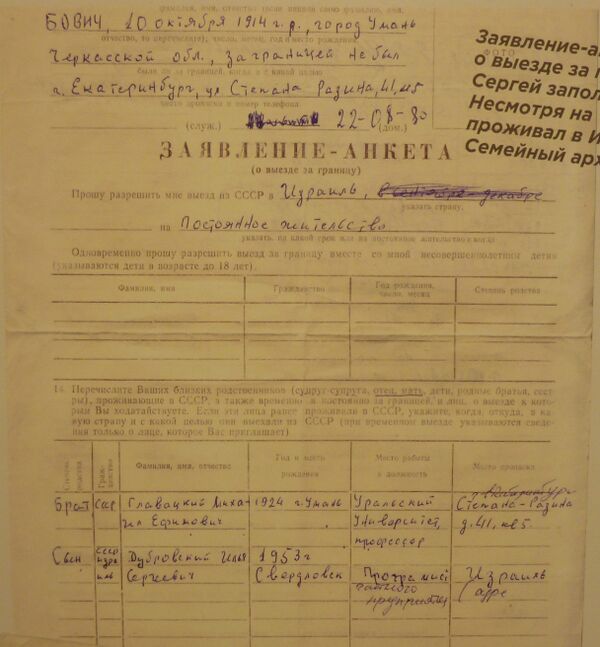 БОВИЧ, 20 октября 1914 г.р., город Умань
отчество, то перечислите), число, месяц, год и место рождения
Черкасской обл., за границей не был
были ли за границей, когда и с какой целью
г. Екатеринбург, ул Степана Разина, 41, кв5
место прописки и номер телефона
(служ.) 22-08-80 (дом.)
ФОТО
Заявление-а
о выезде за г
Сергей запол
Несмотря на
проживал в И
Семейный арх
ЗАЯВЛЕНИЕ-АНКЕТА
(о выезде за границу)
Прошу разрешить мне выезд из СССР в Израиль, декабре
указать страну,
на Постоянное жительство
указать, на какой срок или на постоянное жительство и когда
Одновременно прошу разрешить выезд за границу вместе со мной несовершеннолетним детям
(указываются дети в возрасте до 18 лет).
Фамилия, имя Гражданство Год рождения, число, месяц Степень родства
14. Перечислите Ваших близких родственников (супруг-супруга, отец, мать, дети, родные братья, сест-
ры), проживающие в СССР, а также временно и постоянно за границей, и лиц, о выезде к кото-
рым Вы ходатайствуете. Если эти лица ранее проживали в СССР, укажите, когда, откуда, в ка-
кую страну и с какой целью они выехали из СССР (при временном выезде указываются сведе-
ния только о лице, которое Вас приглашает)
Степень родства Граж-данство Фамилия, имя, отчество Год и место рождения Место работы и должность Место прописки
Брат СССР Главацкий Миха- 1924 г. Умань Уральский Степана-Разина
ил Ефимович Университет, д. 41, кв 5.
профессор
Сын СССР Дубровский Илья 1953 г
Сергеевич Свердловск Программист Израиль
предприятия